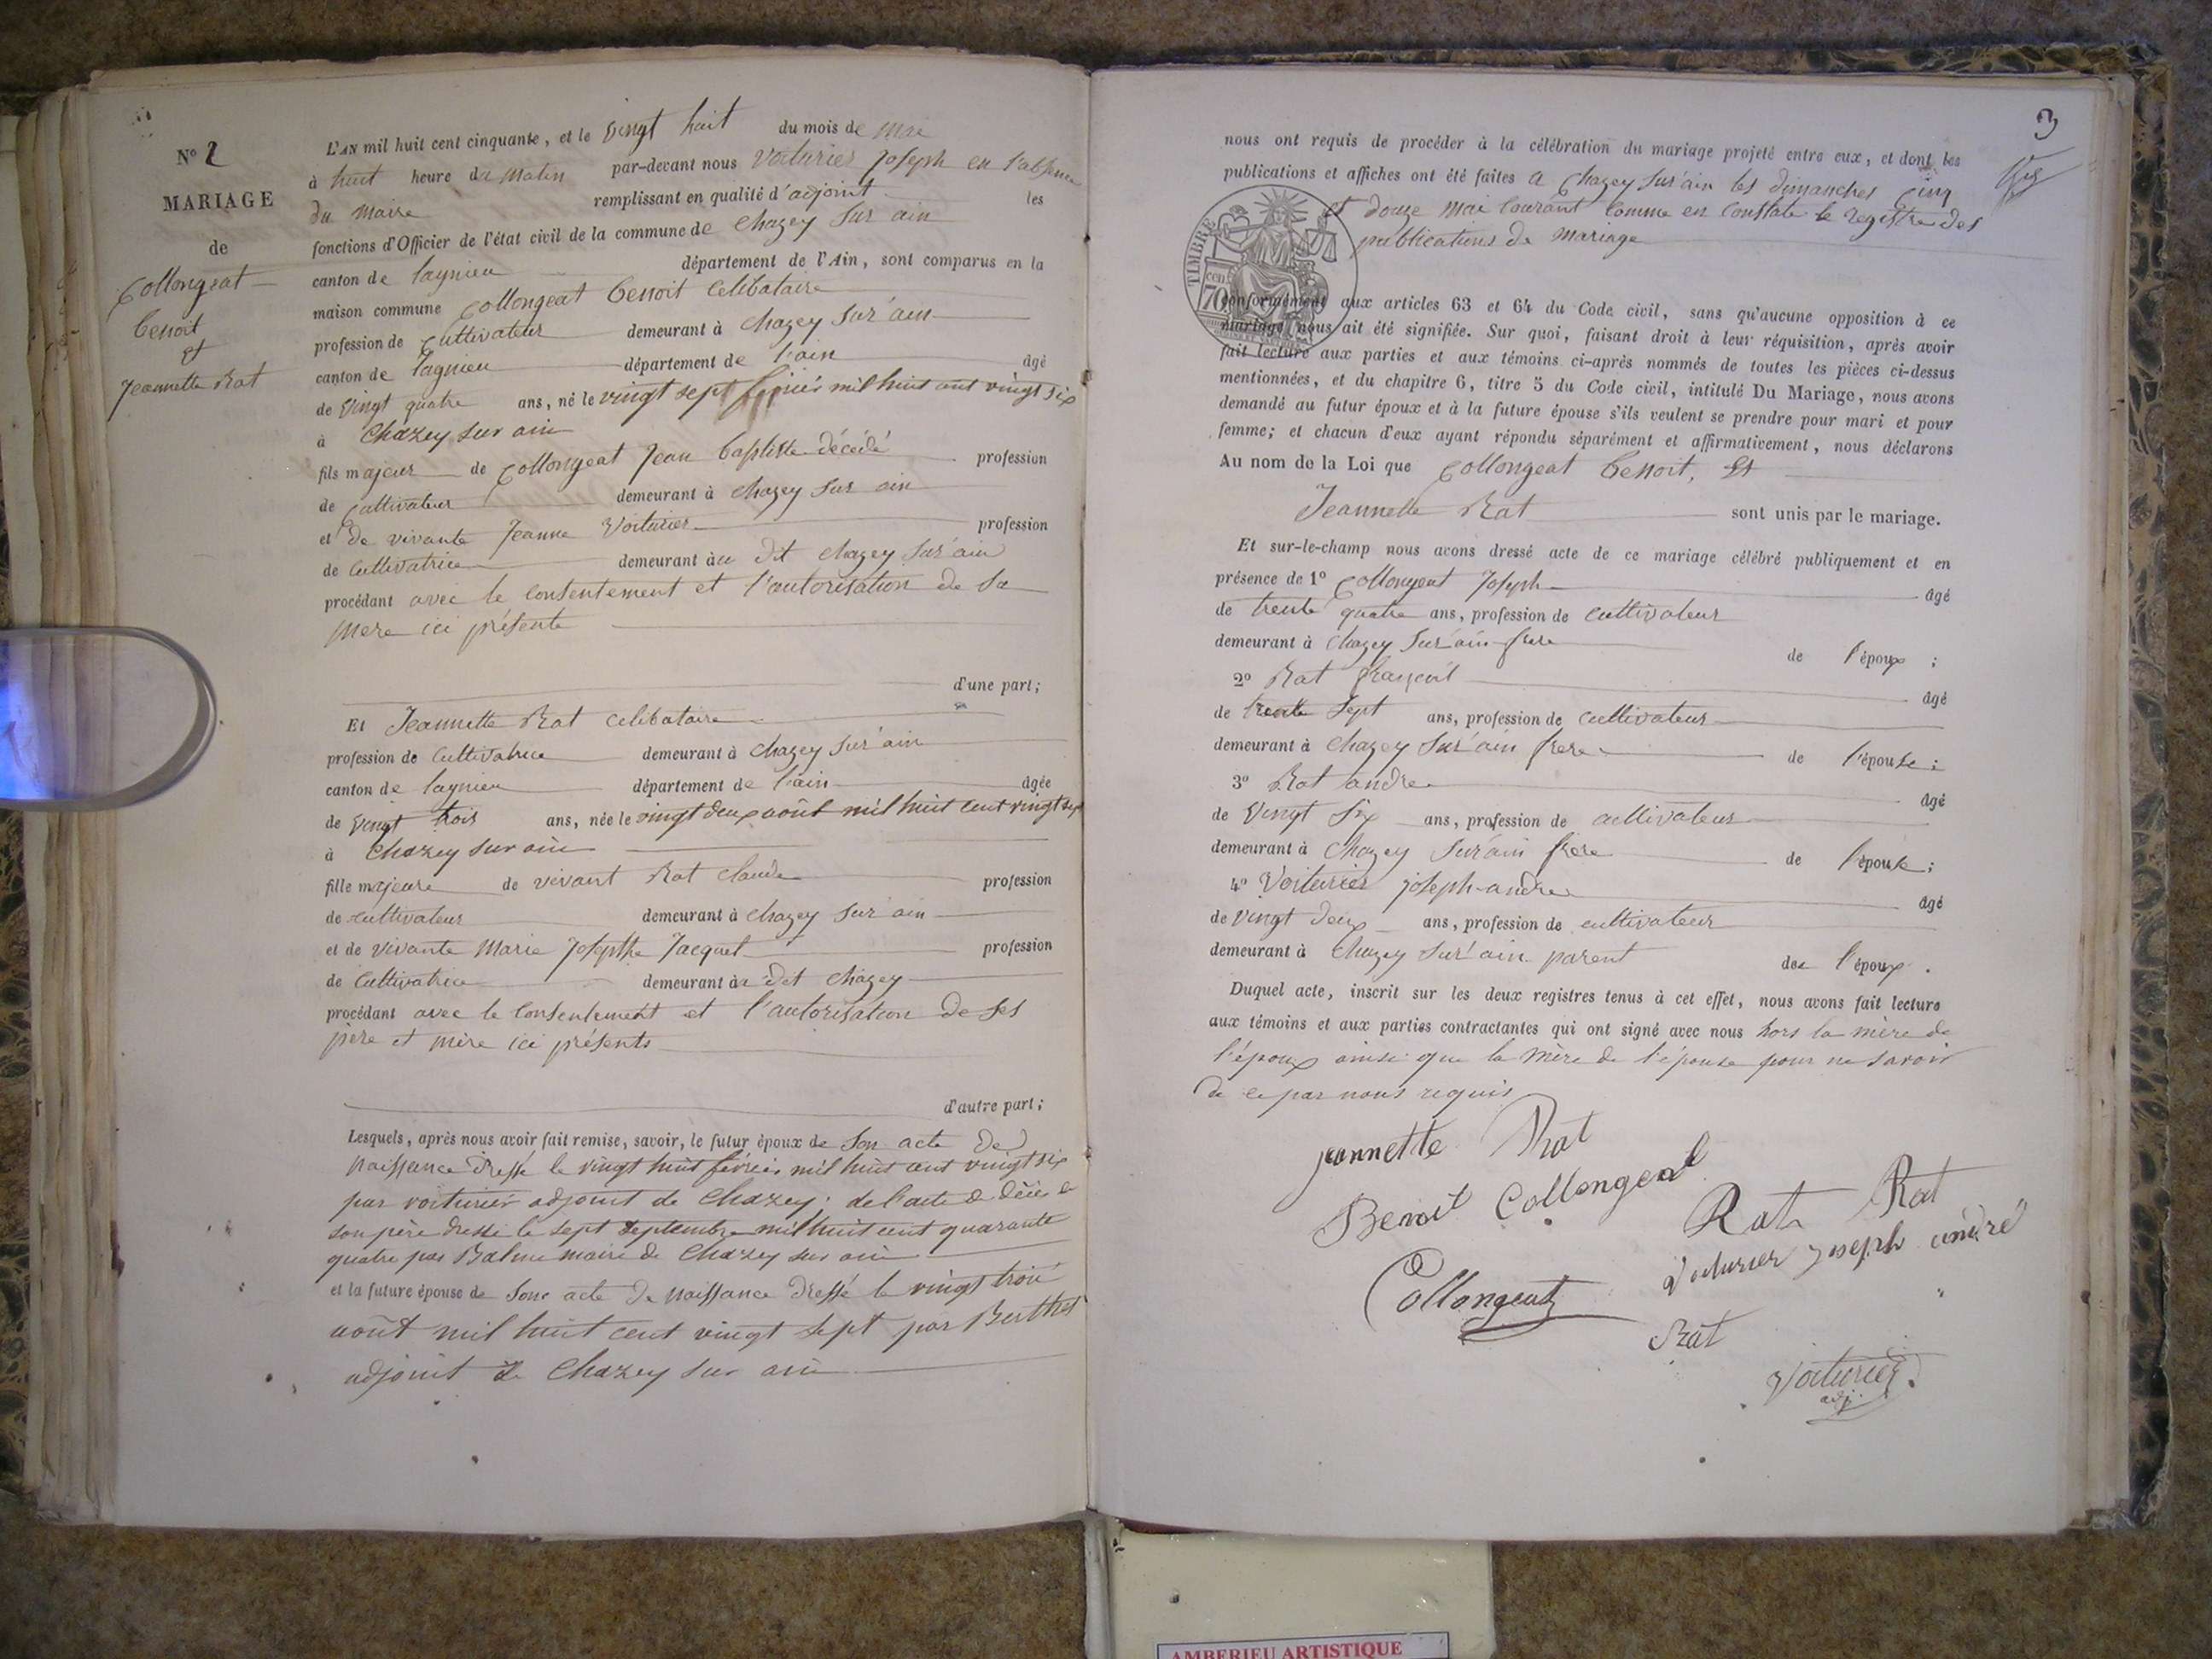 N° 2
MARIAGE
de
Collongeat
benoit
et
Jeannette Rat
L'AN mil huit cent cinquante, et le vingt huit du mois de mai
à huit heure du matin par-devant nous Voiturier Joseph en l'absence
du maire remplissant en qualité d'adjoint les
fonctions d'Officier de l'état civil de la commune de Chazey sur ain
canton de lagnieu département de l'Ain, sont comparus en la
maison commune Collongeat benoit célibataire
profession de Cultivateur demeurant à Chazey sur ain
canton de lagnieu département de l'ain âgé
de vingt quatre ans, né le vingt sept février mil huit cent vingt six
à Chazey sur ain
fils majeur de Collongeat Jean baptiste décédé profession
de Cultivateur demeurant à Chazey sur ain
et de vivante Jeanne Voiturier profession
de Cultivatrice demeurant àu dit Chazey sur ain
procédant avec le consentement et l'autorisation de sa
mere ici présente
d'une part;
Et Jeannette Rat celibataire
profession de Cultivatrice demeurant à Chazey sur ain
canton de lagnieu département de l'ain âgée
de vingt trois ans, née le vingt deux août mil huit cent vingt sept
à Chazey sur ain
fille majeure de vivant Rat Claude profession
de cultivateur demeurant à Chazey sur ain
et de vivante Marie Josephte Jacquet profession
de Cultivatrice demeurant àu dit Chazey
procédant avec le consentement et l'autorisation de ses
père et mère ici présents
d'autre part;
Lesquels, après nous avoir fait remise, savoir, le futur époux de son acte de
naissance dressé le vingt huit février mil huit cent vingt six
par voiturier adjoint de Chazey; de l'acte de décès de
son père dressé le sept septembre mil huit cent quarante
quatre par Balme maire de Chazey sur ain
et la future épouse de son acte de naissance dressé le vingt trois
août mil huit cent vingt sept par Berthet
adjoint de Chazey sur ain
3
nous ont requis de procéder à la célébration du mariage projeté entre eux, et dont les
publications et affiches ont été faites a Chazey sur ain les dimanches Cinq
et douze mai Courant Comme en Constate le registre des
publications de mariage
TIMBRE
70 cent
conformément aux articles 63 et 64 du Code civil, sans qu'aucune opposition à ce
mariage nous ait été signifiée. Sur quoi, faisant droit à leur réquisition, après avoir
fait lecture aux parties et aux témoins ci-après nommés de toutes les pièces ci-dessus
mentionnées, et du chapitre 6, titre 5 du Code civil, intitulé Du Mariage, nous avons
demandé au futur époux et à la future épouse s'ils veulent se prendre pour mari et pour
femme; et chacun d'eux ayant répondu séparément et affirmativement, nous déclarons
Au nom de la Loi que Collongeat benoit, Et
Jeannette Rat sont unis par le mariage.
Et sur-le-champ nous avons dressé acte de ce mariage célébré publiquement et en
présence de 1° Collongeat Joseph âgé
de trente quatre ans, profession de cultivateur
demeurant à Chazey sur ain frere de l'époux ;
2° Rat françois âgé
de trente sept ans, profession de cultivateur
demeurant à Chazey sur ain frere de l'épouse ;
3° Rat andre âgé
de vingt six ans, profession de cultivateur
demeurant à Chazey sur ain frere de l'épouse ;
4° Voiturier joseph-andre âgé
de vingt deux ans, profession de cultivateur
demeurant à Chazey sur ain parent de l'époux .
Duquel acte, inscrit sur les deux registres tenus à cet effet, nous avons fait lecture
aux témoins et aux parties contractantes qui ont signé avec nous hors la mère de
l'époux ainsi que la mère de l'épouse pour ne savoir
de ce par nous requis
jeannette Rat
Benoit Collongeat
Rat Rat
Collongeat
Voiturier Joseph andré
Rat
Voiturier
adj.
AMBERIEU ARTISTIQUE